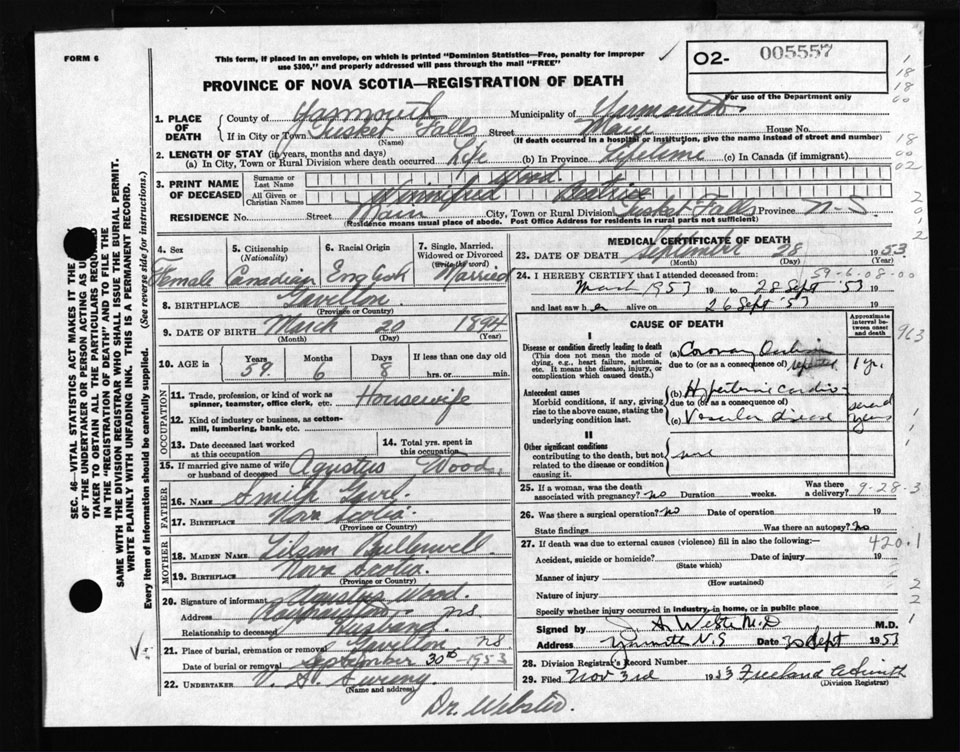 FORM 6
This form, if placed in an envelope, on which is printed "Dominion Statistics—Free, penalty for improper
use $300," and properly addressed will pass through the mail "FREE"
PROVINCE OF NOVA SCOTIA—REGISTRATION OF DEATH
O2- 005557
For use of the Department only
SEC. 46—VITAL STATISTICS ACT MAKES IT THE
OF THE UNDERTAKER OR PERSON ACTING AS U
TAKER TO OBTAIN ALL THE PARTICULARS REQU
IN THE "REGISTRATION OF DEATH" AND TO FILE THE
SAME WITH THE DIVISION REGISTRAR WHO SHALL ISSUE THE BURIAL PERMIT.
WRITE PLAINLY WITH UNFADING INK. THIS IS A PERMANENT RECORD.
Every item of Information should be carefully supplied. (See reverse side for instructions.)
1. PLACE OF DEATH
County of Yarmouth Municipality of Yarmouth
If in City or Town Tusket Falls Street Main House No.
(Name) (If death occurred in a hospital or institution, give the name instead of street and number)
2. LENGTH OF STAY (in years, months and days)
(a) In City, Town or Rural Division where death occurred Life (b) In Province Lifetime (c) In Canada (if immigrant)
3. PRINT NAME OF DECEASED
Surname or Last Name Wood
All Given or Christian Names Winnifred Beatrice
RESIDENCE No. Street Main City, Town or Rural Division Tusket Falls Province N-S.
(Residence means usual place of abode. Post Office Address for residents in rural parts not sufficient)
4. Sex Female
5. Citizenship (Nationality) Canadian
6. Racial Origin English
7. Single, Married, Widowed or Divorced (write the word) Married
8. BIRTHPLACE Gavelton
(Province or Country)
9. DATE OF BIRTH March 20 1894
(Month) (Day) (Year)
10. AGE in Years 59 Months 6 Days 8 If less than one day old
hrs. or min.
OCCUPATION
11. Trade, profession, or kind of work as spinner, teamster, office clerk, etc. Housewife
12. Kind of industry or business, as cotton-mill, lumbering, bank, etc.
13. Date deceased last worked at this occupation
14. Total yrs. spent in this occupation
15. If married give name of wife or husband of deceased Agustus Wood.
FATHER
16. NAME Smith
17. BIRTHPLACE Nova Scotia
(Province or Country)
MOTHER
18. MAIDEN NAME
19. BIRTHPLACE Nova Scotia
(Province or Country)
20. Signature of informant Agustus Wood.
Address NS
Relationship to deceased Husband
21. Place of burial, cremation or removal Gavelton NS
Date of burial or removal September 30th 1953
22. UNDERTAKER V. S. Sweeny
(Name and address)
MEDICAL CERTIFICATE OF DEATH
23. DATE OF DEATH September 28 1953
(Month) (Day) (Year)
59-6-08-00
24. I HEREBY CERTIFY that I attended deceased from:
March 1953 19 to 28 Sept '53 19
and last saw h er alive on 26 Sept '53 19
CAUSE OF DEATH
Approximate interval between onset and death
963
I
Disease or condition directly leading to death
(This does not mean the mode of dying, e.g., heart failure, asthenia, etc. It means the disease, injury, or complication which caused death.)
(a) Coronary
due to (or as a consequence of) 1 yr.
Antecedent causes
Morbid conditions, if any, giving rise to the above cause, stating the underlying condition last.
(b) Hypertensive cardio-
due to (or as a consequence of)
(c) Vascular disease several years
II
Other significant conditions
contributing to the death, but not related to the disease or condition causing it.
none
25. If a woman, was the death associated with pregnancy? no Duration weeks. Was there a delivery?
9-28-3
26. Was there a surgical operation? no Date of operation 19
State findings Was there an autopsy? no
27. If death was due to external causes (violence) fill in also the following:—
420.1
Accident, suicide or homicide? Date of injury 19
(State which)
Manner of injury
(How sustained)
Nature of injury
Specify whether injury occurred in industry, in home, or in public place
Signed by A Webster M.D M.D.
Address Yarmouth N.S Date 30 Sept 1953
28. Division Registrar's Record Number
29. Filed Nov 3rd 1953 Freeland
(Division Registrar)
Dr. Webster.